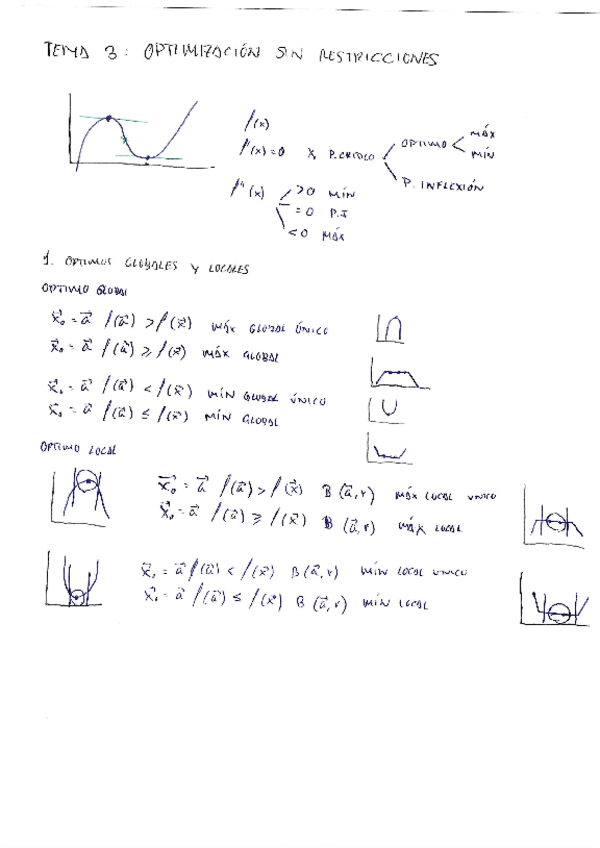 TEMA 3: OPTIMIZACIÓN SIN RESTRICCIONES
f(x)
f'(x)=0 x₀ P.CRITICO OPTIMO MÁX
MÍN
P. INFLEXIÓN
f''(x) >0 MÍN
=0 P.I
<0 MÁX
1. OPTIMOS GLOBALES Y LOCALES
OPTIMO GLOBAL
x⃗₀ = a⃗ f(a⃗) > f(x⃗) MÁX GLOBAL ÚNICO
x⃗₀ = a⃗ f(a⃗) ≥ f(x⃗) MÁX GLOBAL
x⃗₀ = a⃗ f(a⃗) < f(x⃗) MÍN GLOBAL ÚNICO
x⃗₀ = a⃗ f(a⃗) ≤ f(x⃗) MÍN GLOBAL
OPTIMO LOCAL
x⃗₀ = a⃗ f(a⃗) > f(x⃗) B(a⃗,r) MÁX LOCAL UNICO
x⃗₀ = a⃗ f(a⃗) ≥ f(x⃗) B(a⃗,r) MÁX LOCAL
x⃗₀ = a⃗ f(a⃗) < f(x⃗) B(a⃗,r) MÍN LOCAL UNICO
x⃗₀ = a⃗ f(a⃗) ≤ f(x⃗) B(a⃗,r) MÍN LOCAL